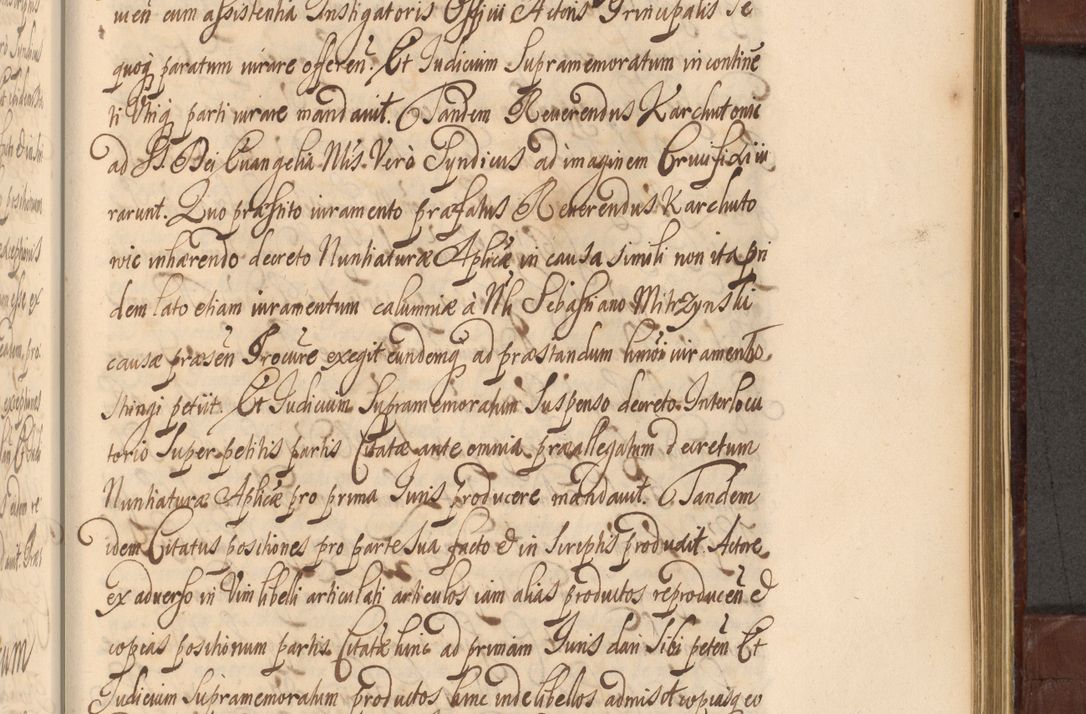 men cum assistentia Instigatoris Officii Actoris Principalis se
quoq paratum iurare offeren. Et Iudicium Supramemoratum in contine
ti Utriq parti iurare mandavit. Tandem Reverendus Karchutowic
ad SS. Dei Evangelia Mis. Verò Syndicus ad imaginem Crucifixi iu
rarunt. Quo præstito iuramento præfatus Reverendus Karchuto
wic inhærendo decreto Nuntiaturæ Aplicæ in causa simili non ita pri
dem lato etiam iuramentum calumniæ à Nb Sebastiano Mitrzynski
causæ præsen Procure exegit eundemq ad præstandum hmoi iuramento
stringi petiit. Et Iudicium Supramemoratum Suspenso decreto Interlocu
torio Super petitis partis Citatæ ante omnia præallegatum decretum
Nuntiaturæ Aplicæ pro prima Iuris producere mandavit. Tandem
idem Citatus positiones pro parte Sua facto et in Scriptis produxit Actore
ex adverso in Vim libelli articulati articulos iam alias productos reproducen et
copias positionum partis Citatæ hinc ad primam Iuris dari Sibi peten Et
Iudicium Supramemoratum productos hinc inde libellos admisit copiasq eo